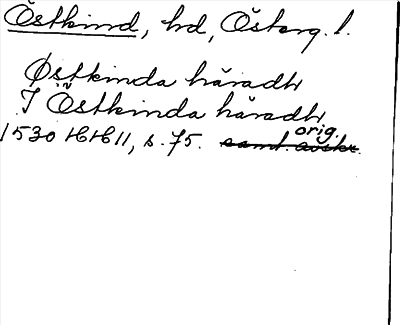 Östkind, hd, Österg. l.
Østkinda häradh
J Östkinda häradh
orig.
1530 HH 11, s. 75. samt. avskr.